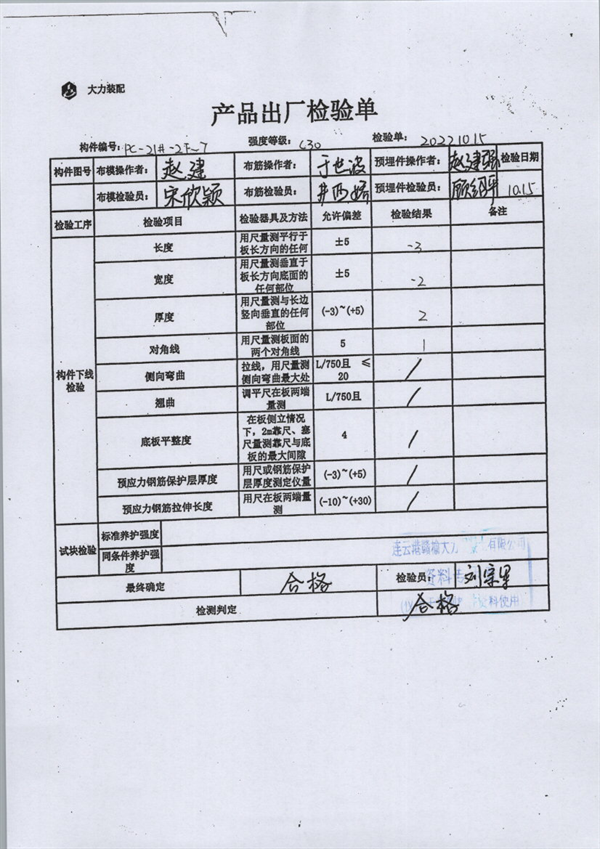 大力装配
产品出厂检验单
构件编号: PC-21#-2F-7 强度等级: C30 检验单: 20221015
构件图号 布模操作者: 赵建 布筋操作者: 于世波 预埋件操作者: 赵建强 检验日期
布模检验员: 宋欣颖 布筋检验员: 预埋件检验员: 1015
检验工序 检验项目 检验器具及方法 允许偏差 检验结果 备注
构件下线检验
长度 用尺量测平行于板长方向的任何 ±5 -3
宽度 用尺量测垂直于板长方向底面的任何部位 ±5 -2
厚度 用尺量测与长边竖向垂直的任何部位 (-3)~(+5) 2
对角线 用尺量测板面的两个对角线 5 1
侧向弯曲 拉线，用尺量测侧向弯曲最大处 L/750且 ≤20 /
翘曲 调平尺在板两端量测 L/750且 /
底板平整度 在板侧立情况下，2m靠尺、塞尺量测靠尺与底板的最大间隙 4 /
预应力钢筋保护层厚度 用尺或钢筋保护层厚度测定仪量 (-3)~(+5) /
预应力钢筋拉伸长度 用尺在板两端量测 (-10)~(+30) /
试块检验 标准养护强度
同条件养护强度
连云港赣榆大力 有限公司
资料专
料使用
最终确定 合格 检验员:
检测判定 合格